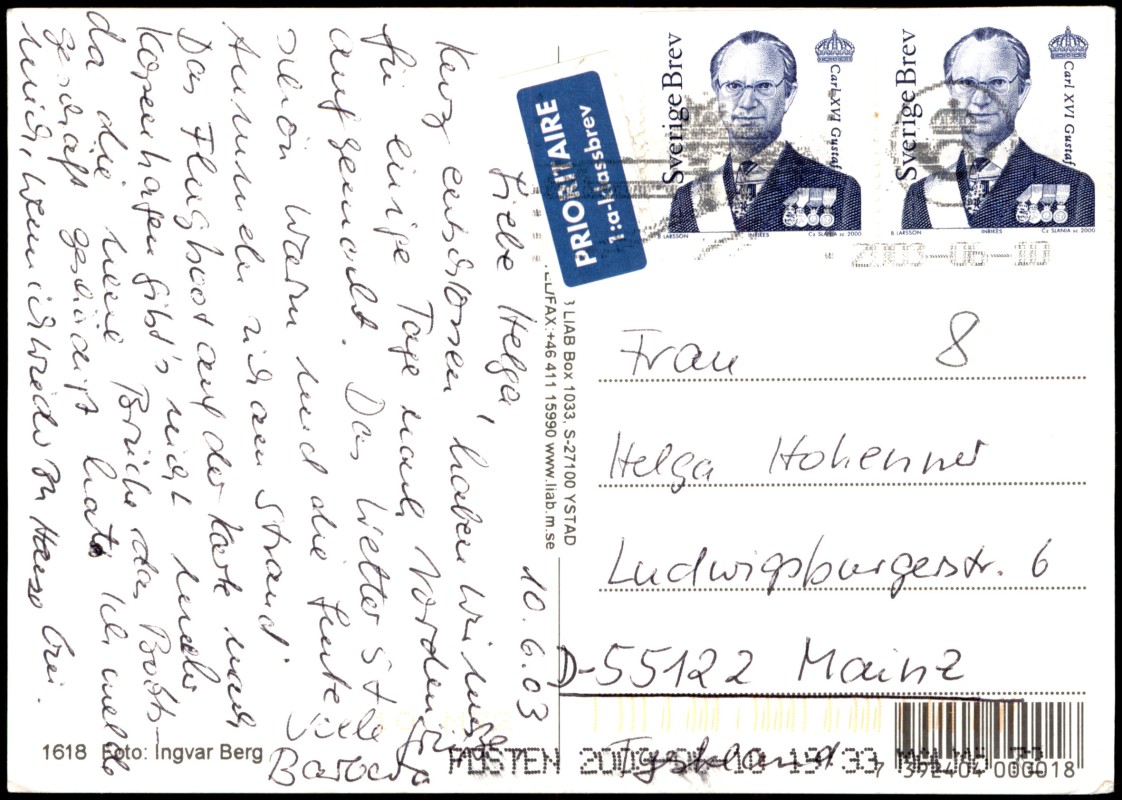 Liebe Helga,
10.6.03
Kurz entschlossen haben wir uns
für einige Tage nach Norden
aufgemacht. Das Wetter ist
schön warm und die Leute
tummeln sich am Strand.
Das Flugboot auf der Karte nach
Kopenhagen gibt's nicht mehr
da die neue Brücke das Boots-
geschäft geschädigt hat. Ich melde
mich, wenn ich wieder zu Hause bin.
Viele Grüße
Barbara
1618 Foto: Ingvar Berg
LIAB Box 1033, S-27100 YSTAD
TEL/FAX:+46 411 15990 www.liab.m.se
PRIORITAIRE
1:a-klassbrev
Sverige Brev
Carl XVI Gustaf
B LARSSON INRIKES Cz SLANIA sc 2000
Sverige Brev
Carl XVI Gustaf
B LARSSON INRIKES Cz SLANIA sc 2000
2003-06-10
Frau 8
Helga Hohenner
Ludwigsburgerstr. 6
D-55122 Mainz
Tyskland
POSTEN
7 392404 000018